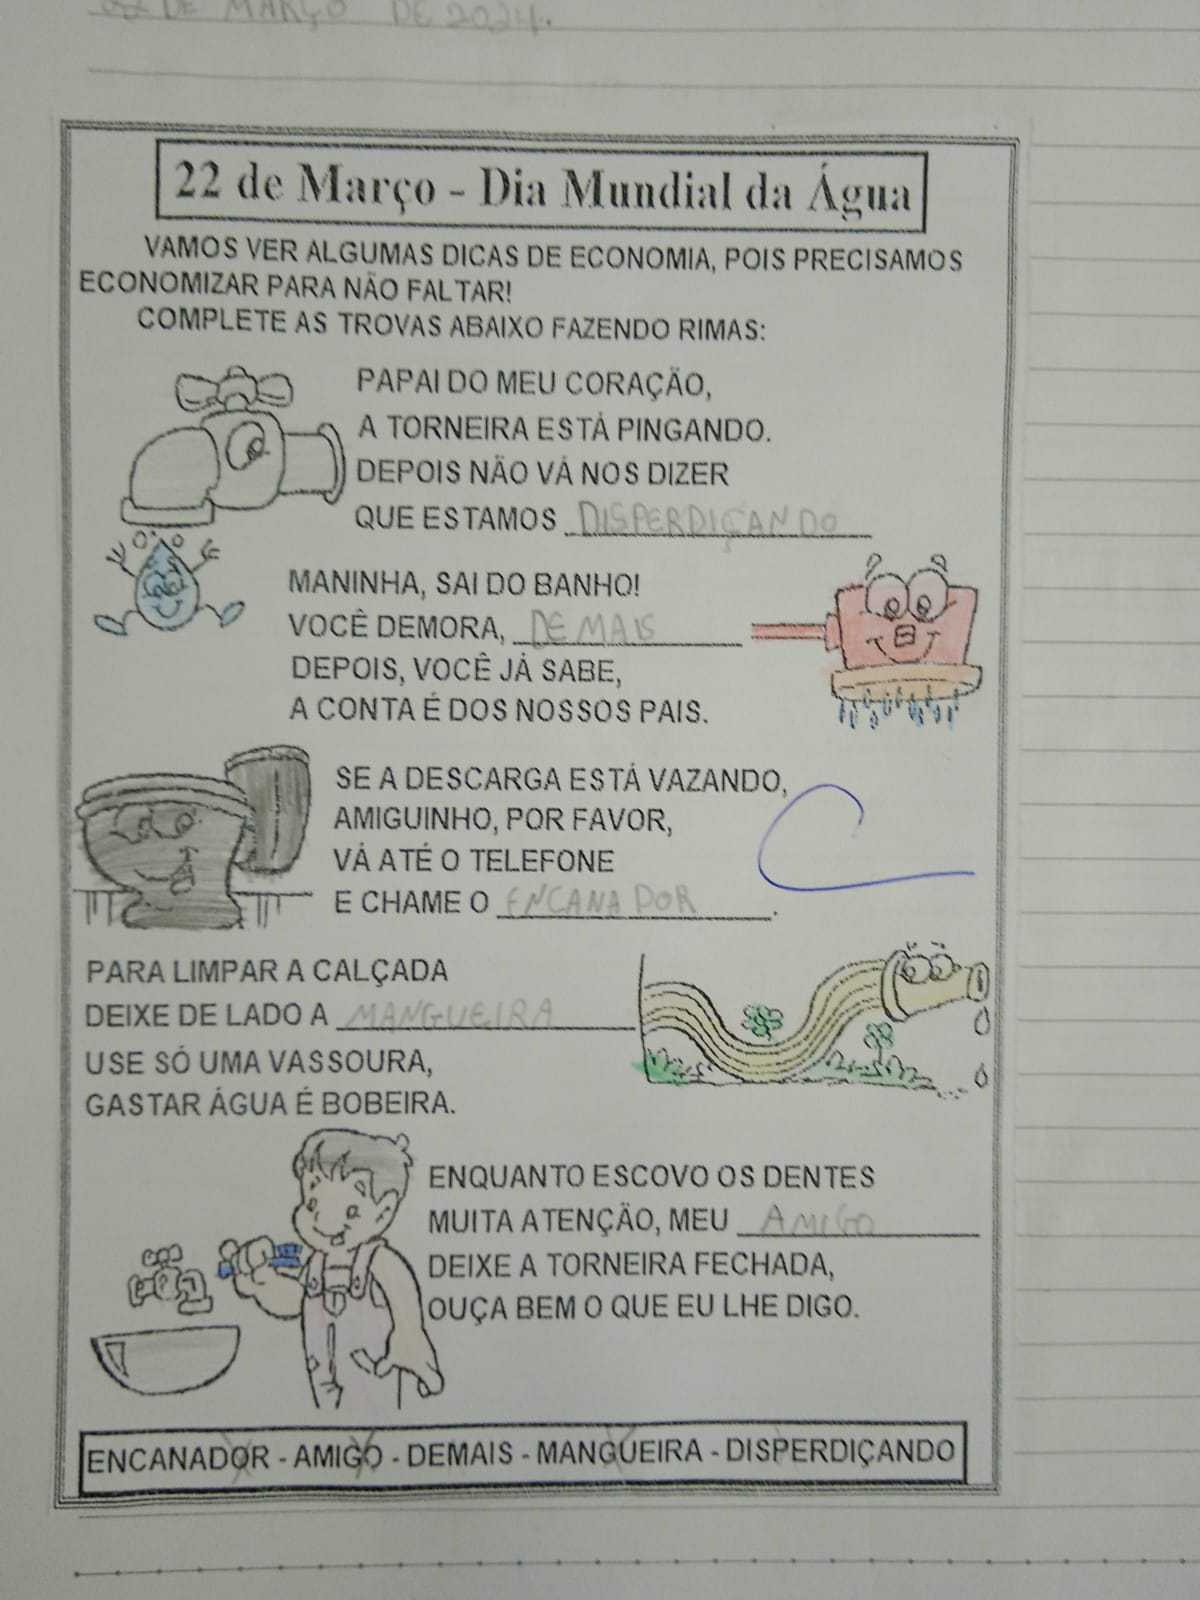 DE MARÇO DE 2024.
22 de Março - Dia Mundial da Água
VAMOS VER ALGUMAS DICAS DE ECONOMIA, POIS PRECISAMOS
ECONOMIZAR PARA NÃO FALTAR!
COMPLETE AS TROVAS ABAIXO FAZENDO RIMAS:
PAPAI DO MEU CORAÇÃO,
A TORNEIRA ESTÁ PINGANDO.
DEPOIS NÃO VÁ NOS DIZER
QUE ESTAMOS DISPERDIÇANDO
MANINHA, SAI DO BANHO!
VOCÊ DEMORA, DEMAIS
DEPOIS, VOCÊ JÁ SABE,
A CONTA É DOS NOSSOS PAIS.
SE A DESCARGA ESTÁ VAZANDO,
AMIGUINHO, POR FAVOR,
VÁ ATÉ O TELEFONE
E CHAME O ENCANADOR.
PARA LIMPAR A CALÇADA
DEIXE DE LADO A MANGUEIRA
USE SÓ UMA VASSOURA,
GASTAR ÁGUA É BOBEIRA.
ENQUANTO ESCOVO OS DENTES
MUITA ATENÇÃO, MEU AMIGO
DEIXE A TORNEIRA FECHADA,
OUÇA BEM O QUE EU LHE DIGO.
ENCANADOR - AMIGO - DEMAIS - MANGUEIRA - DISPERDIÇANDO